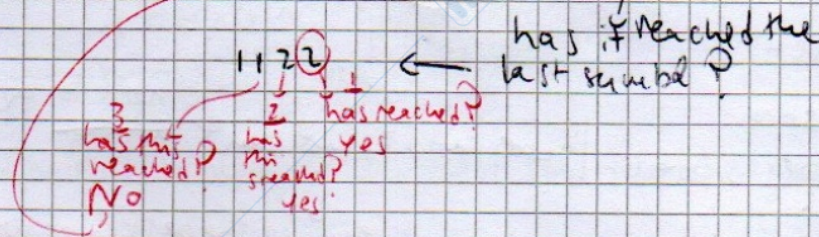 has it reached the
last symbol?
1122
1
has reached?
yes
2
has
this
reached?
yes
3
has this
reached?
No